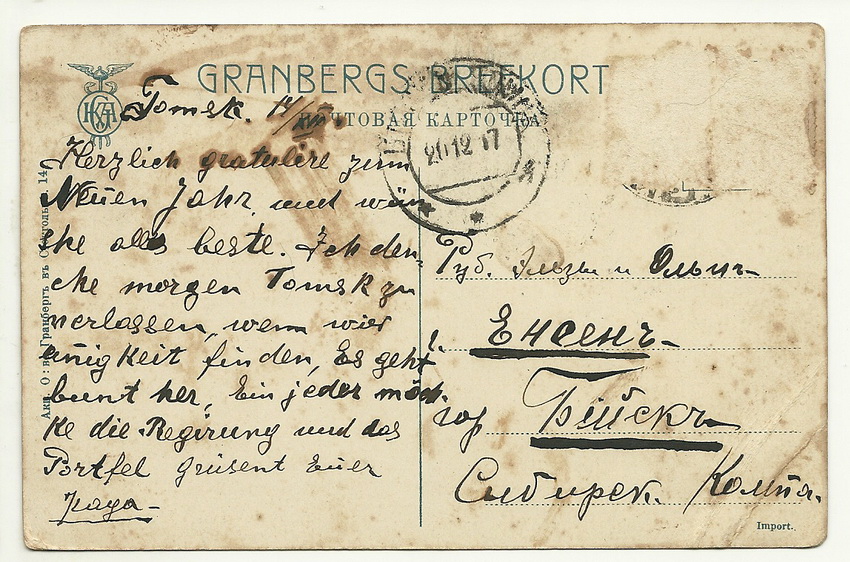 GRANBERGS BREFKORT
ПОЧТОВАЯ КАРТОЧКА
Tomsk.
20 12 17
Herzlich gratulire zum
Neuen Jahr, und wün
che alles beste. Ich den-
cke morgen Tomsk zu
verlassen, wenn wier
einigkeit finden, Es geht
bunt her, Ein jeder möch
te die Regirung und das
Portfel grüsent Euer
Акц. О: во Гранбергъ въ Стокгольмѣ. 14
Ольги
Енсенъ
гор Бійскъ
Сибирск.
Import.